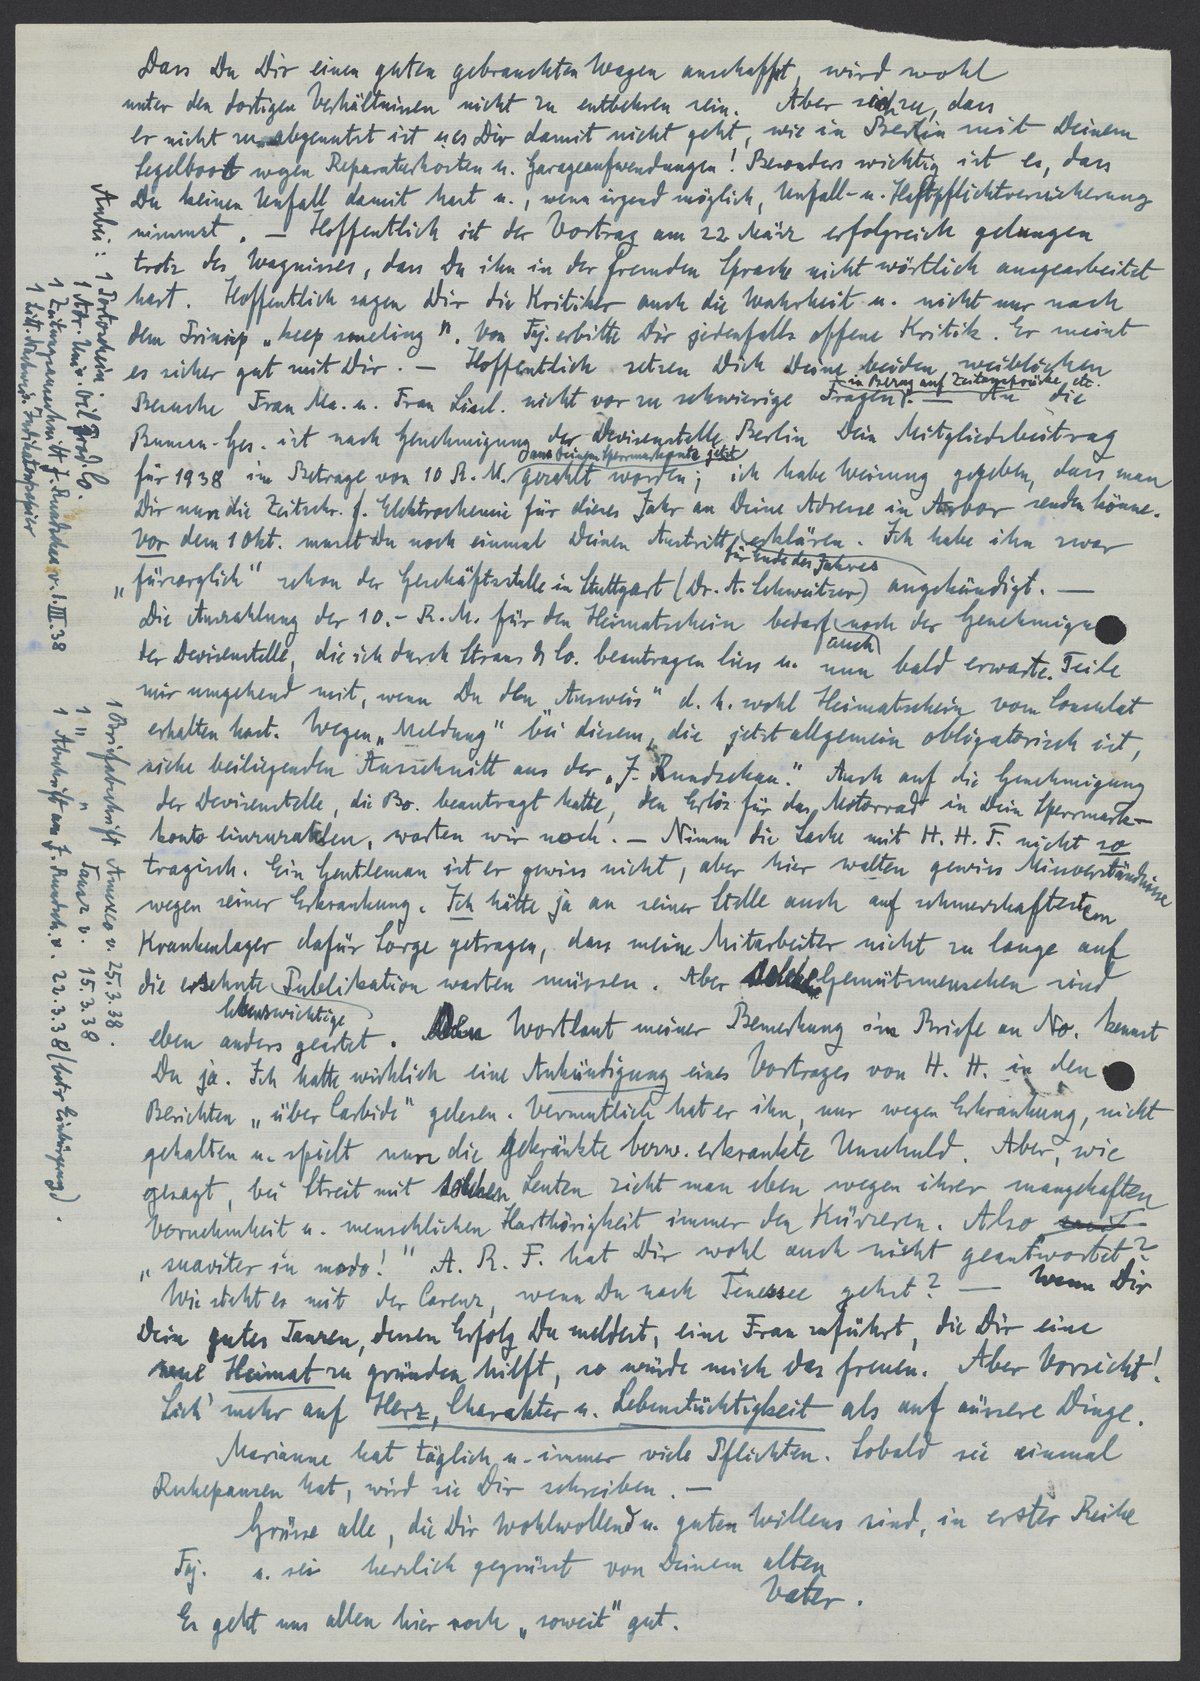 Dass Du Dir einen guten gebrauchten Wagen anschaffst, wird wohl
unter den dortigen Verhältnissen nicht zu entbehren sein. Aber sieh zu, dass
er nicht zu abgenutzt ist u. es Dir damit nicht geht, wie in Berlin mit Deinem
Segelboot wegen Reparaturkosten u. Garageaufwendungen! Besonders wichtig ist es, dass
Du keinen Unfall damit hast u., wenn irgend möglich, Unfall- u. Haftpflichtversicherung
nimmst. — Hoffentlich ist der Vortrag am 22. März erfolgreich gelungen
trotz des Wagnisses, dass Du ihn in der fremden Sprache nicht wörtlich ausgearbeitet
hast. Hoffentlich sagen Dir die Kritiker auch die Wahrheit u. nicht nur nach
dem Prinzip „keep smeling". Von Faj. erbitte Dir jedenfalls offene Kritik. Er meint
es sicher gut mit Dir. — Hoffentlich setzen Dich Deine beiden weiblichen
in Bezug auf Zeitansprüche etc.
Besuche Frau Ma. u. Frau Lisel. nicht vor zu schwierige Fragen. — An die
Bunsen-Ges. ist nach Genehmigung der Devisenstelle Berlin Dein Mitgliedsbeitrag
aus Deinem Sperrmarkkonto jetzt
für 1938 im Betrage von 10 R.M. gezahlt worden; ich habe Weisung gegeben, dass man
Dir nun die Zeitschr. f. Elektrochemie für dieses Jahr an Deine Adresse in Arbor senden könne.
Vor dem 1 Okt. musst Du noch einmal Deinen Austritt erklären. Ich habe ihn zwar
für Ende des Jahres
„fürsorglich" schon der Geschäftsstelle in Stuttgart (Dr. A. Schweitzer) angekündigt. —
Die Auszahlung der 10.- R.M. für den Heimatschein bedarf noch der Genehmigung
auch
der Devisenstelle, die ich durch Straus & Co. beantragen liess u. nun bald erwarte. Teile
mir umgehend mit, wenn Du den „Ausweis" d. h. wohl Heimatschein vom Consulat
erhalten hast. Wegen „Meldung" bei diesem, die jetzt allgemein obligatorisch ist,
siehe beiliegenden Ausschnitt aus der „J. Rundschau." Auch auf die Genehmigung
der Devisenstelle, die Bo. beantragt hatte, den Erlös für das Motorrad in Dein Sperrmark-
konto einzuzahlen, warten wir noch. — Nimm die Sache mit H. H. F. nicht so
tragisch. Ein Gentleman ist er gewiss nicht, aber hier walten gewiss Missverständnisse
wegen seiner Erkrankung. Ich hätte ja an seiner Stelle auch auf schmerzhaftestem
Krankenlager dafür Sorge getragen, dass meine Mitarbeiter nicht zu lange auf
die ersehnte Publikation warten müssen. Aber solche Gemütsmenschen sind
lebenswichtige
eben anders geartet. Den Wortlaut meiner Bemerkung im Briefe an No. kennst
Du ja. Ich hatte wirklich eine Ankündigung eines Vortrages von H. H. in den
Berichten „über Carbide" gelesen. Vermutlich hat er ihn, nur wegen Erkrankung, nicht
gehalten u. spielt nun die gekränkte bezw. erkrankte Unschuld. Aber, wie
gesagt, bei Streit mit solchen Leuten zieht man eben wegen ihrer mangelhaften
Vornehmheit u. menschlichen Harthörigkeit immer den Kürzeren. Also
„suaviter in modo!" A. R. F. hat Dir wohl auch nicht geantwortet?
Wie steht es mit der Carenz, wenn Du nach Tenessee gehst? — Wenn Dir
Dein gutes Tanzen, dessen Erfolg Du meldest, eine Frau zuführt, die Dir eine
neue Heimat zu gründen hilft, so würde mich das freuen. Aber Vorsicht!
Sieh' mehr auf Herz, Charakter u. Lebenstüchtigkeit als auf äussere Dinge.
Marianne hat täglich u. immer viele Pflichten. Sobald sie einmal
Ruhepausen hat, wird sie Dir schreiben. —
Grüsse alle, die Dir wohlwollend u. guten Willens sind, in erster Reihe
Faj. u. sei herzlich gegrüsst von Deinem alten
Vater.
Es geht uns allen hier noch „soweit" gut.
Anbei: 1 Portoschein
1 Adr. Univ.
1 Zeitungsausschnitt J. Rundschau v. 1.III.38
1 Indikatorpapier
1 Briefabschrift Amexco v. 25.3.38.
1 " " v. 15.3.38
1 Abschrift aus J. Rundsch. v. 22.3.38 (betr. Einbürgerung).